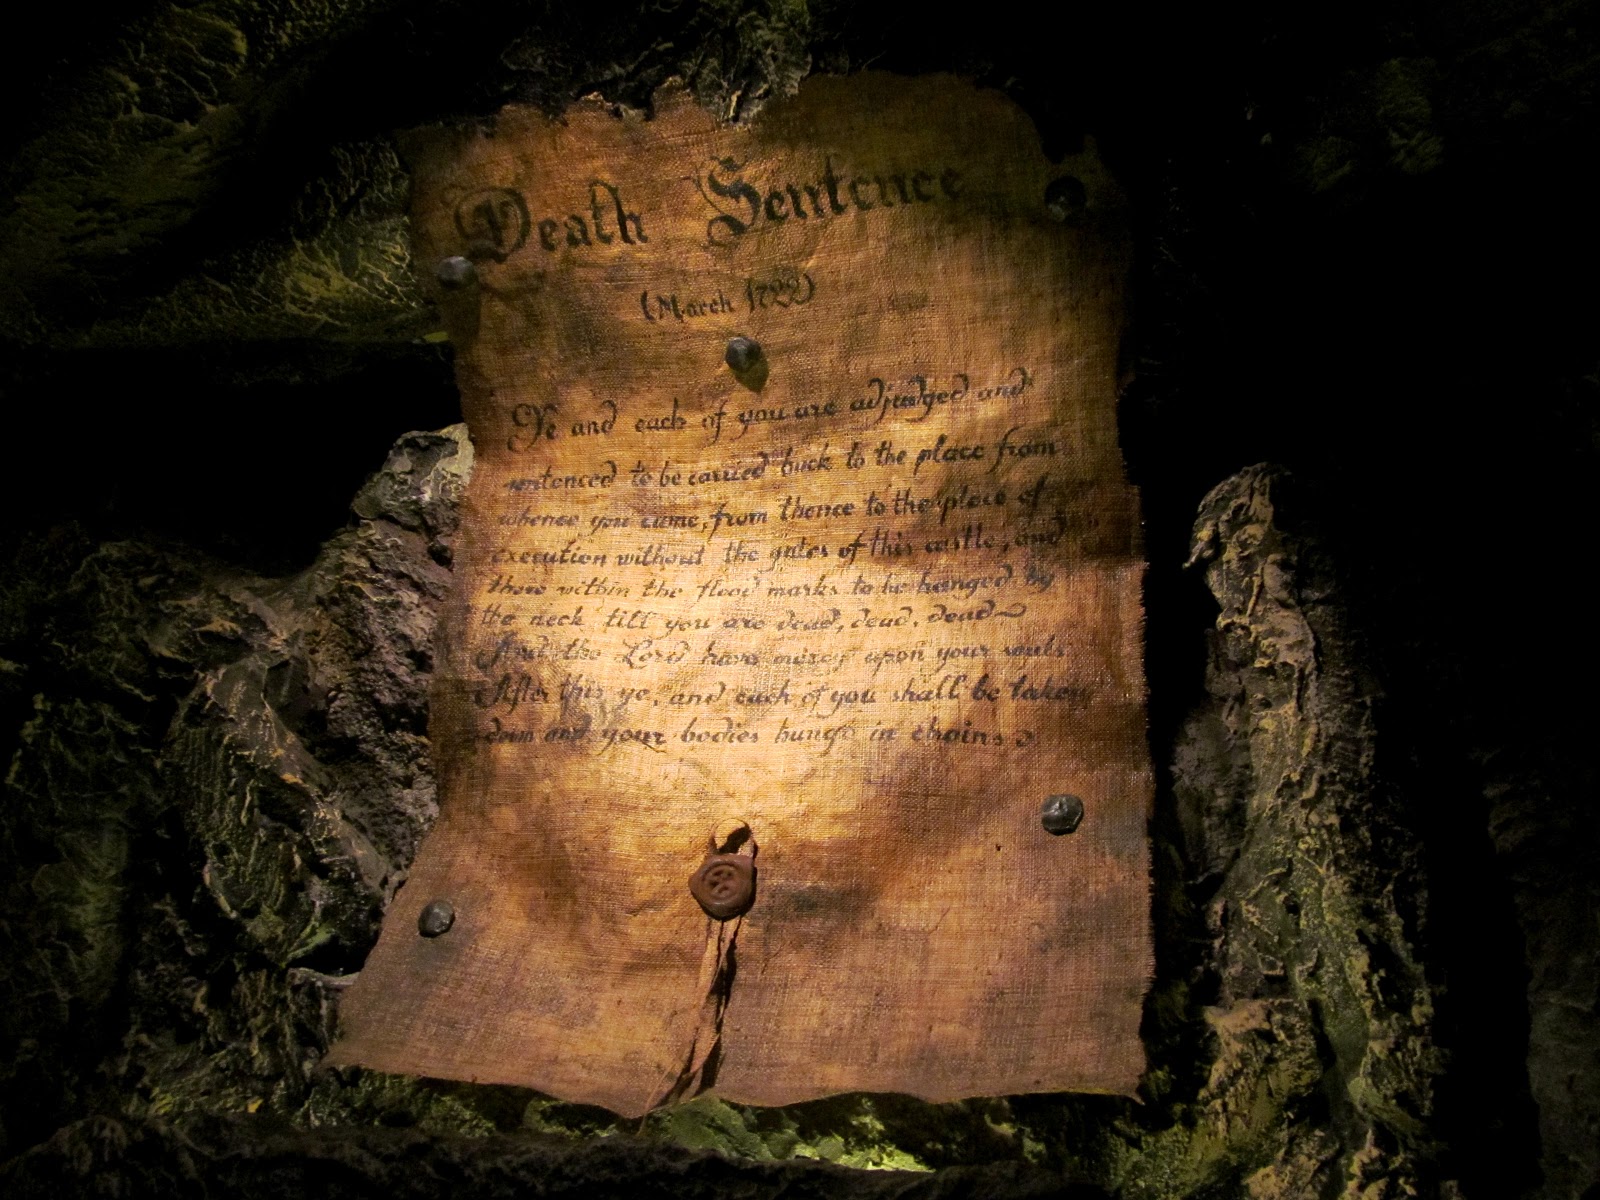 Death Sentence
(March 1722)
Ye and each of you are adjudged and
sentenced to be carried back to the place from
whence you came, from thence to the place of
execution without the gates of this castle, and
there within the flood marks to be hanged by
the neck till you are dead, dead, dead
And the Lord have mercy upon your souls
After this ye, and each of you shall be taken
down and your bodies hung in chains